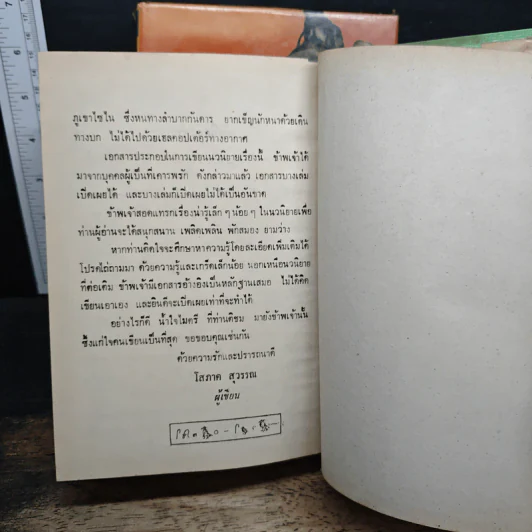 ภูเขาไซใน ซึ่งหนทางลำบากกันดาร ยากเข็ญนักหนาด้วยเดิน
ทางบก ไม่ได้ไปด้วยเฮลคอปเต้อร์ทางอากาศ
เอกสารประกอบในการเขียนนวนิยายเรื่องนี้ ข้าพเจ้าได้
มาจากบุคคลผู้เป็นที่เคารพรัก ดังกล่าวมาแล้ว เอกสารบางเล่ม
เปิดเผยได้ และบางเล่มก็เปิดเผยไม่ได้เป็นอันขาด
ข้าพเจ้าสอดแทรกเรื่องน่ารู้เล็ก ๆ น้อย ๆ ในนวนิยายเพื่อ
ท่านผู้อ่านจะได้สนุกสนาน เพลิดเพลิน พักสมอง ยามว่าง
หากท่านติดใจจะศึกษาหาความรู้โดยละเอียดเพิ่มเติมได้
โปรดไถ่ถามมา ด้วยความรู้และเกร็ดเล็กน้อย นอกเหนือนวนิยาย
ที่ต่อเติม ข้าพเจ้ามีเอกสารอ้างอิงเป็นหลักฐานเสมอ ไม่ได้คิด
เขียนเอาเอง และยินดีจะเปิดเผยเท่าที่จะทำได้
อย่างไรก็ดี น้ำใจไมตรี ที่ท่านติชม มายังข้าพเจ้านั้น
ซึ้งแก่ใจคนเขียนเป็นที่สุด ขอขอบคุณเช่นกัน
ด้วยความรักและปรารถนาดี
โสภาค สุวรรณ
ผู้เขียน